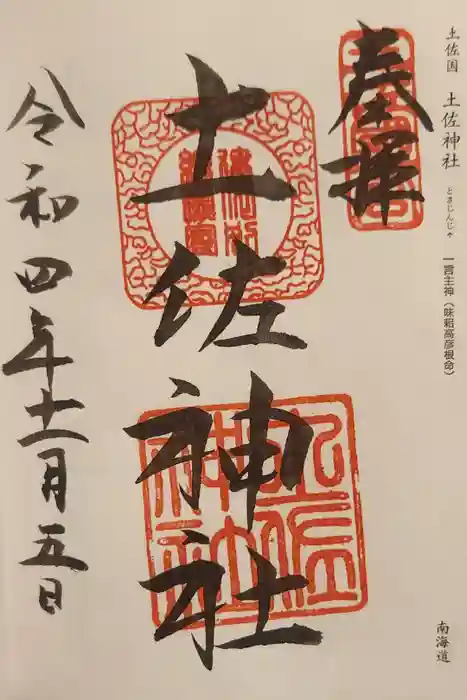 土佐国 土佐神社 とさじんじゃ 一言主神(味耜高彦根命)
南海道
奉拝
土佐神社
土佐神社
令和四年十一月五日